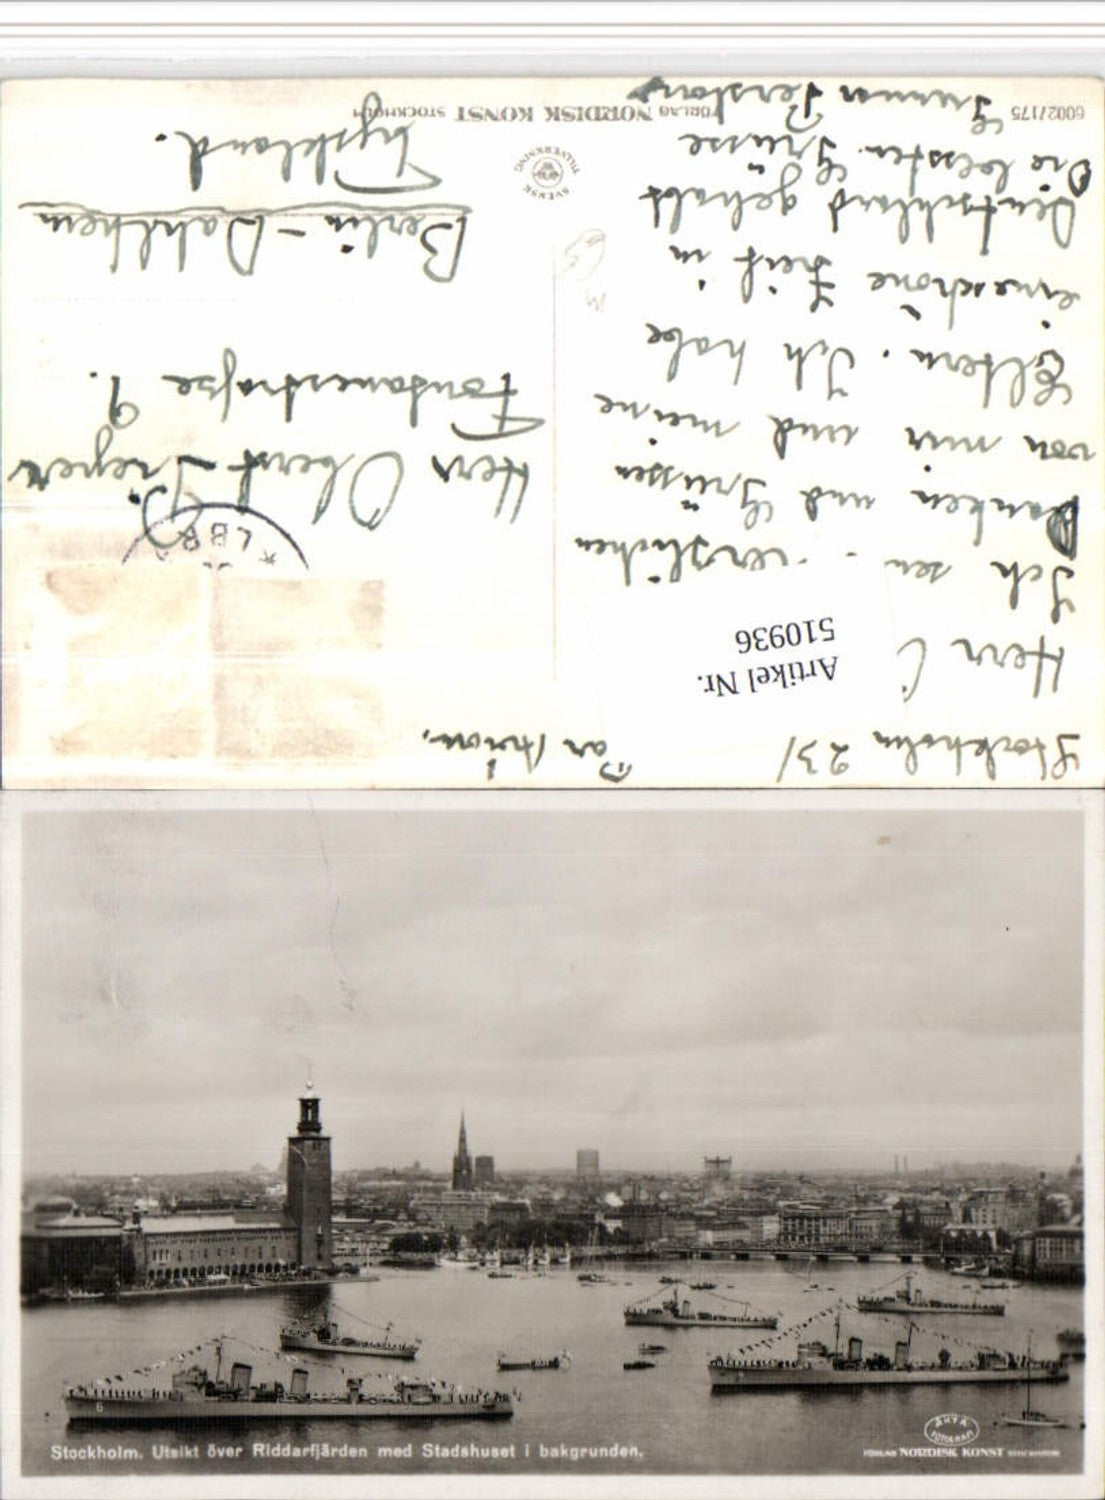 Stockholm 23/
Par Avion.
Herr
Ich sen
Danken und Grüssen
von mir und meine
Eltern. Ich habe
eine schöne Zeit in
Deutschland gehabt
Die besten Grüsse
Gunnar
Artikel Nr.
510936
Herr Oberst
Fontanestraße 9.
Berlin-Dahlhem
Tyskland.
SVENSK TILLVERKNING
FÖRLAG NORDISK KONST STOCKHOLM
6002/1175
Stockholm. Utsikt över Riddarfjärden med Stadshuset i bakgrunden.
ÄKTA FOTOGRAFI
FÖRLAG NORDISK KONST STOCKHOLM
6